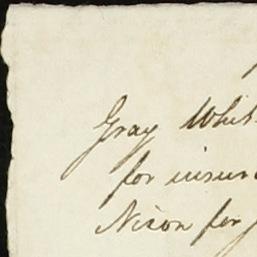 Gray Whit
for insur
Nixon for